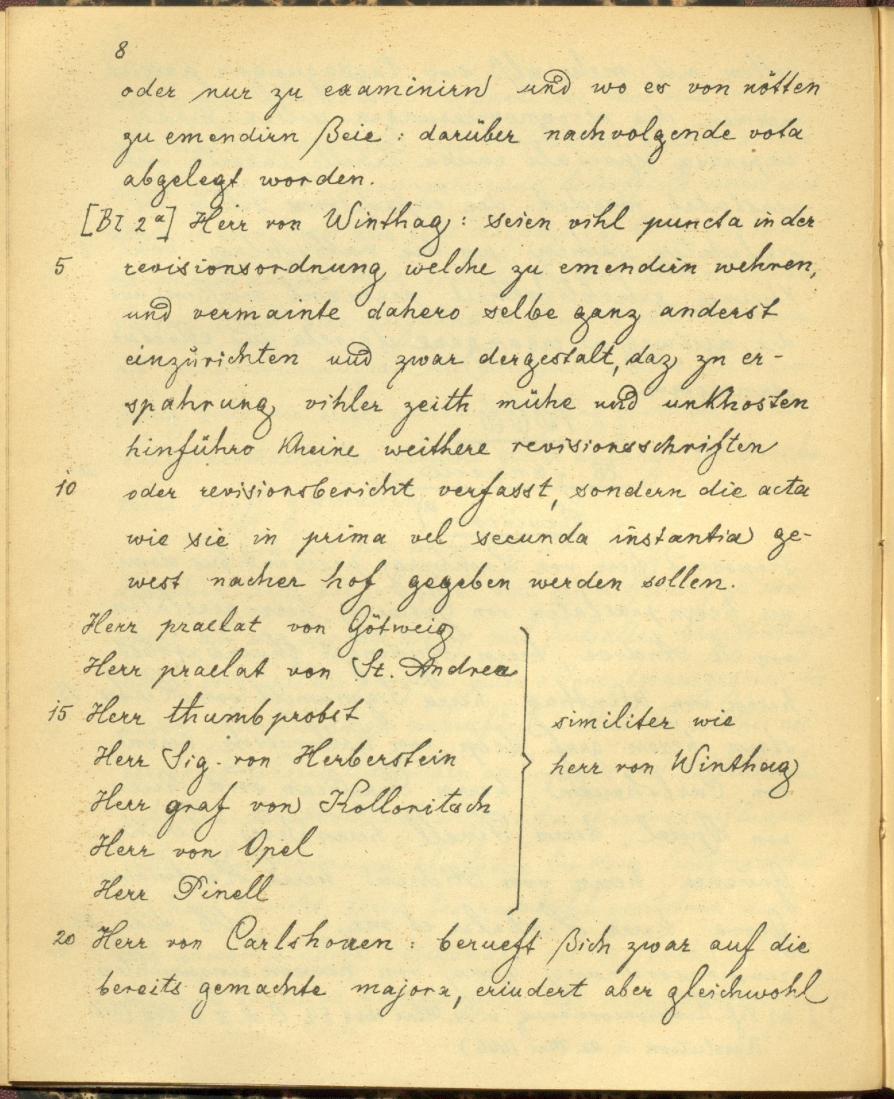 8
oder nur zu examinirn und wo es von nötten
zu emendirn ßeie : darüber nachvolgende vota
abgelegt worden.
[Bl 2ª] Herr von Winthag : seien vihl puncta in der
5 revisionsordnung welche zu emendirn wehren,
und vermainte dahero selbe ganz anderst
einzurichten und zwar dergestalt, daz zu er-
spahrung vihler zeith mühe und unkhosten
hinführo kheine weithere revisionsschriften
10 oder revisionsbericht verfasst, sondern die acta
wie sie in prima vel secunda instantia ge-
west nacher hof gegeben werden sollen.
Herr praelat von Götweig
Herr praelat von St. Andrea
15 Herr thumbprobst similiter wie
Herr Sig. von Herberstein herr von Winthag
Herr graf von Kollonitsch
Herr von Opel
Herr Pinell
20 Herr von Carlshoven : berueft ßich zwar auf die
bereits gemachte majora, erindert aber gleichwohl